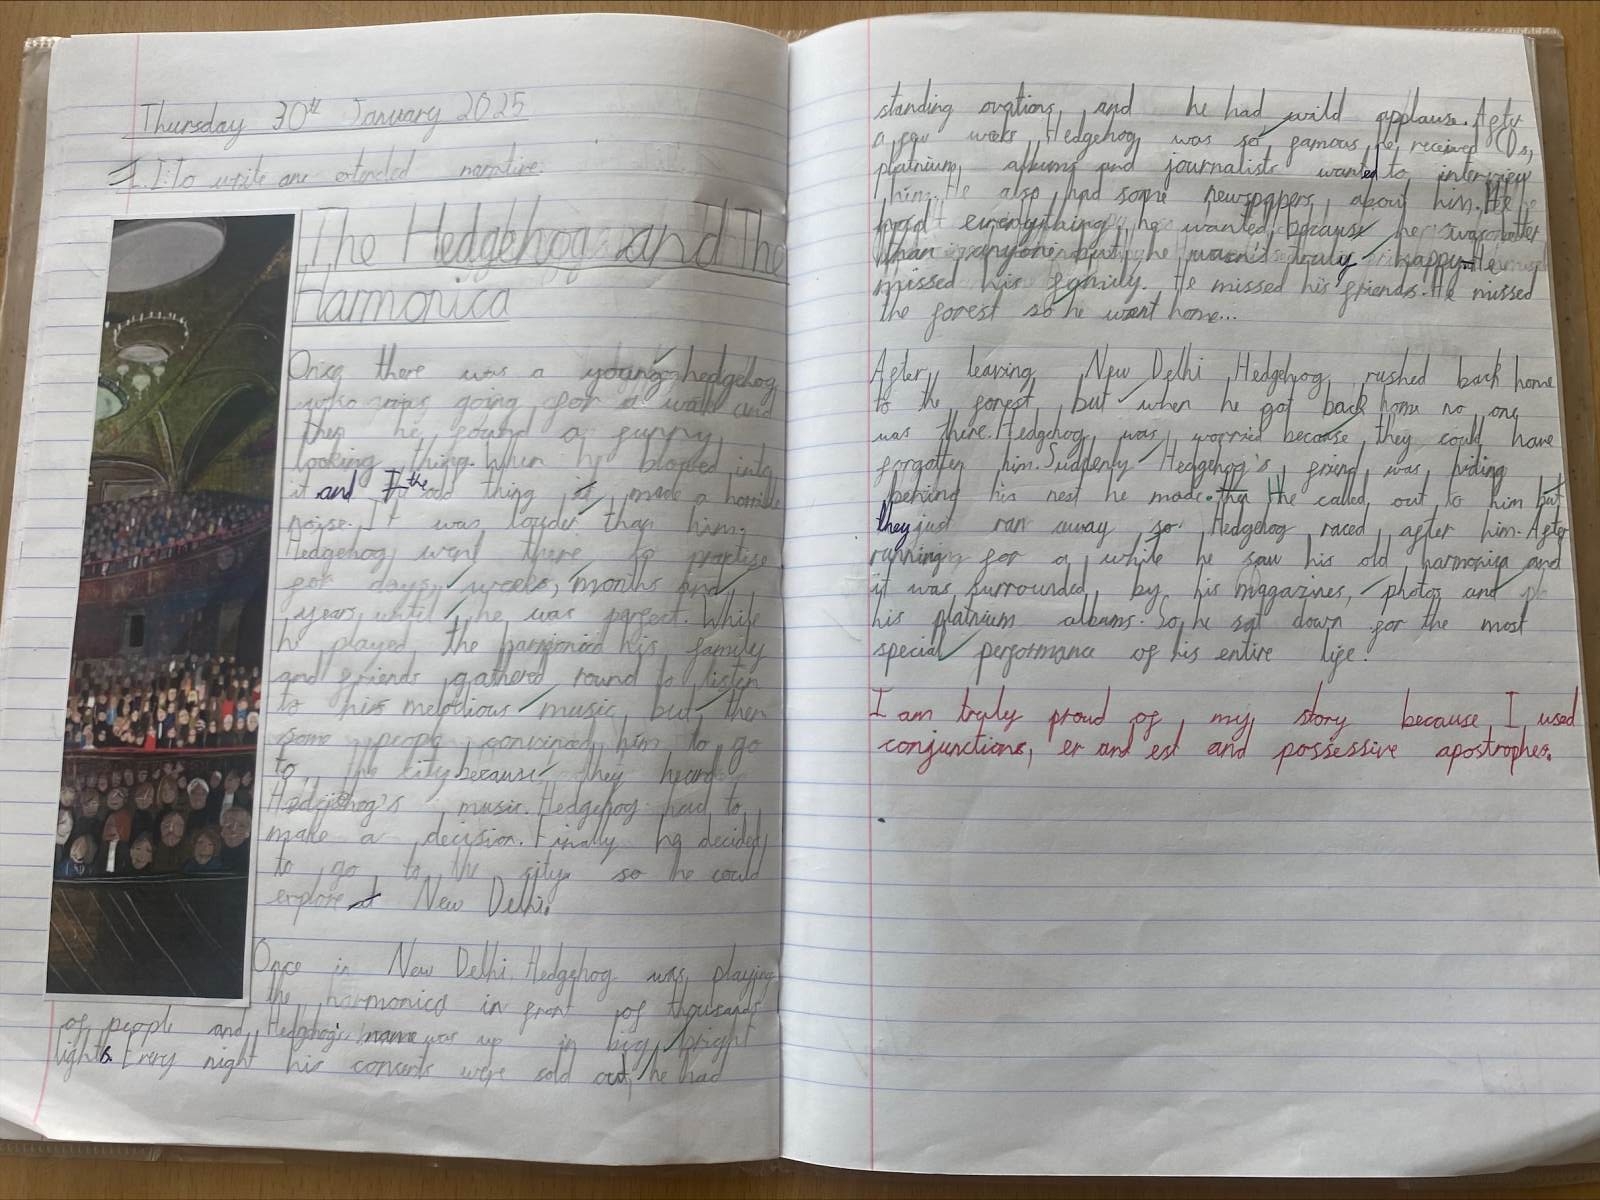 Thursday 30th January 2025
L.I: to write an extended narrative.
The Hedgehog and The
Harmonica
Once there was a young hedgehog
who was going for a walk and
then he found a funny
looking thing. When he blowed into
it and the odd thing it made a horrible
noise. It was louder than him.
Hedgehog went there to practise
for days, weeks, months and
years until he was perfect. While
he played the harmonica his family
and friends gathered round to listen
to his melodious music, but then
some people convinced him to go
to the city because they heard
Hedgehog's music. Hedgehog had to
make a decision. Finally he decided
to go to the city so he could
explore New Delhi.
Once in New Delhi, Hedgehog was playing
the harmonica in front of thousands
of people and Hedgehog's name was up in big, bright
lights. Every night his concerts were sold out, he had
standing ovations, and he had wild applause. After
a few weeks Hedgehog was so famous he received CDs,
platnium albums and journalists wanted to interview
him. He also had some newspapers about him. He
had everything he wanted because he was better
than anyone but he wasn't truly happy. He
missed his family. He missed his friends. He missed
the forest so he went home...
After leaving New Delhi Hedgehog rushed back home
to the forest, but when he got back home no one
was there. Hedgehog was worried because they could have
forgotten him. Suddenly Hedgehog's friend was hiding
behind his nest he made. He called out to him but
they just ran away so Hedgehog raced after him. After
running for a while he saw his old harmonica and
it was surrounded by his magazines, photos and
his platnium albums. So he sat down for the most
special performance of his entire life.
I am truly proud of my story because I used
conjunctions, er and est and possessive apostrophes.